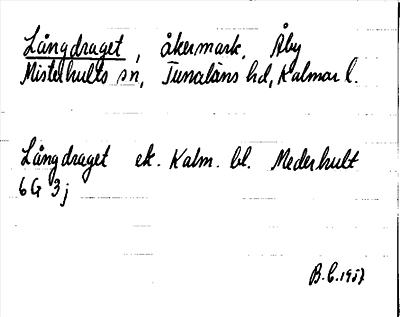 Långdraget, åkermark, Åby
Misterhults sn, Tunaläns hd, Kalmar l.
Långdraget ek. Kalm. bl. Mederhult
6G 3j
B.C. 1957